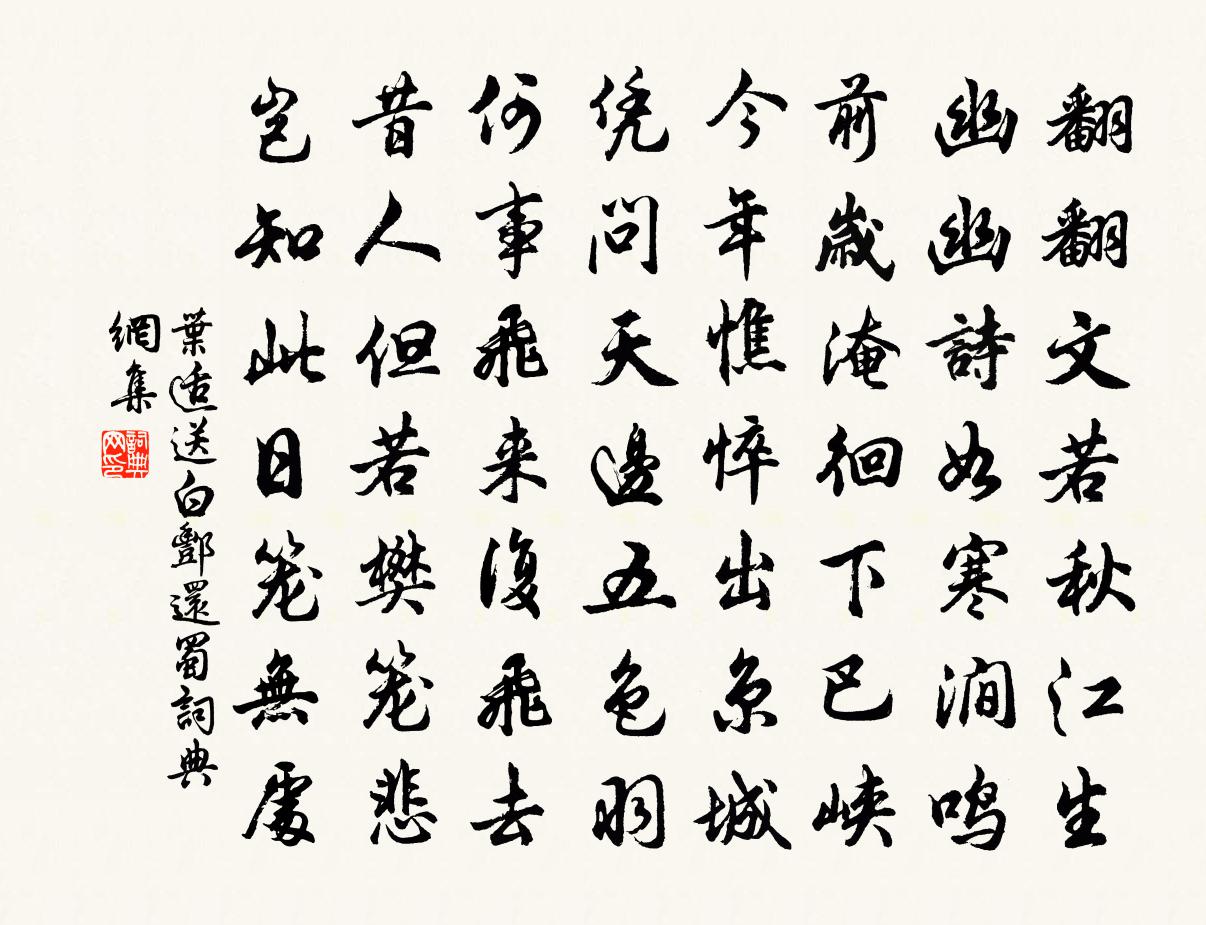 翻翻文若秋江生
幽幽詩如寒澗鸣
前歲淹徊下巴峡
今年憔悴出京城
凭問天邊五色羽
何事飛来復飛去
昔人但若樊笼悲
岂知此日笼無處
葉适送白酆還蜀詞典
網集
詞典
网印